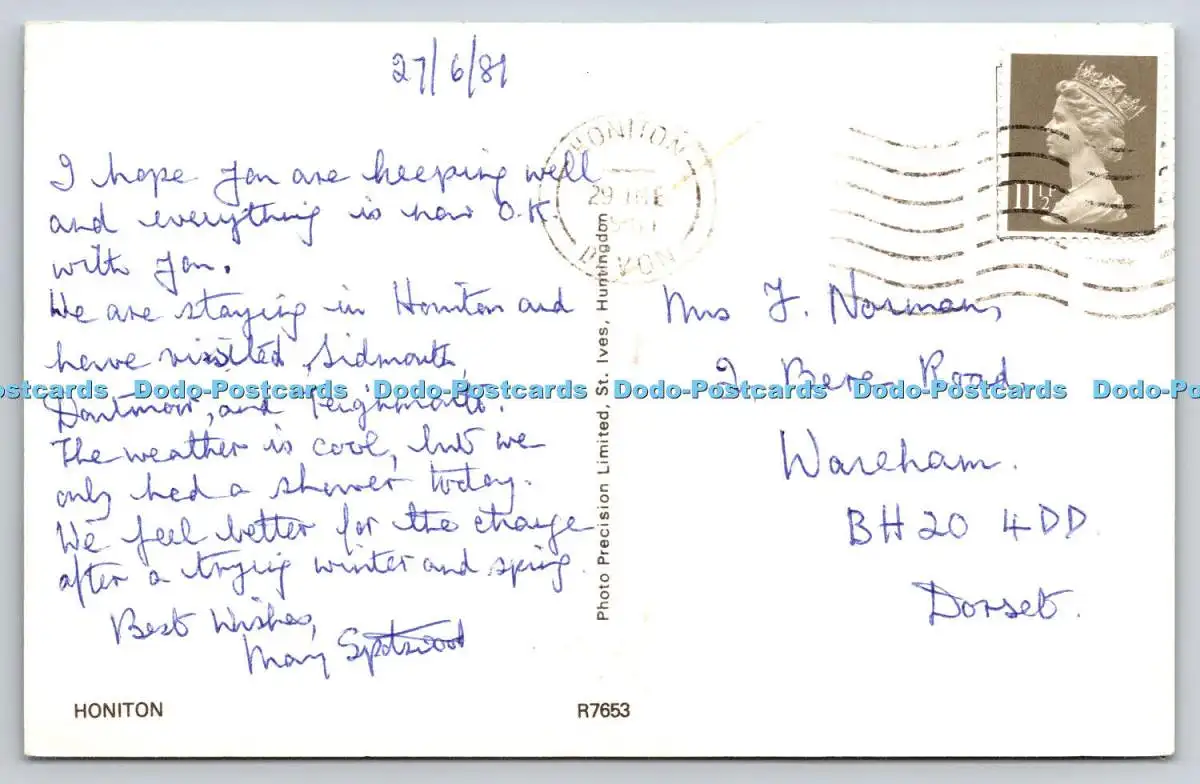 27/6/81
I hope you are keeping well
and everything is now O.K.
with you.
We are staying in Honiton and
have visited Sidmouth,
Dartmoor, and Teignmouth.
The weather is cool, but we
only had a shower today.
We feel better for the change
after a trying winter and spring.
Best Wishes,
Mary Spotswood
HONITON
R7653
Photo Precision Limited, St. Ives, Huntingdon
HONITON
29 
DEVON
11½P
Mrs J. Norman,
2 Bere Road,
Wareham.
BH20 4DD.
Dorset.
Dodo-Postcards Dodo-Postcards Dodo-Postcards Dodo-Postcards Dodo-Postcards